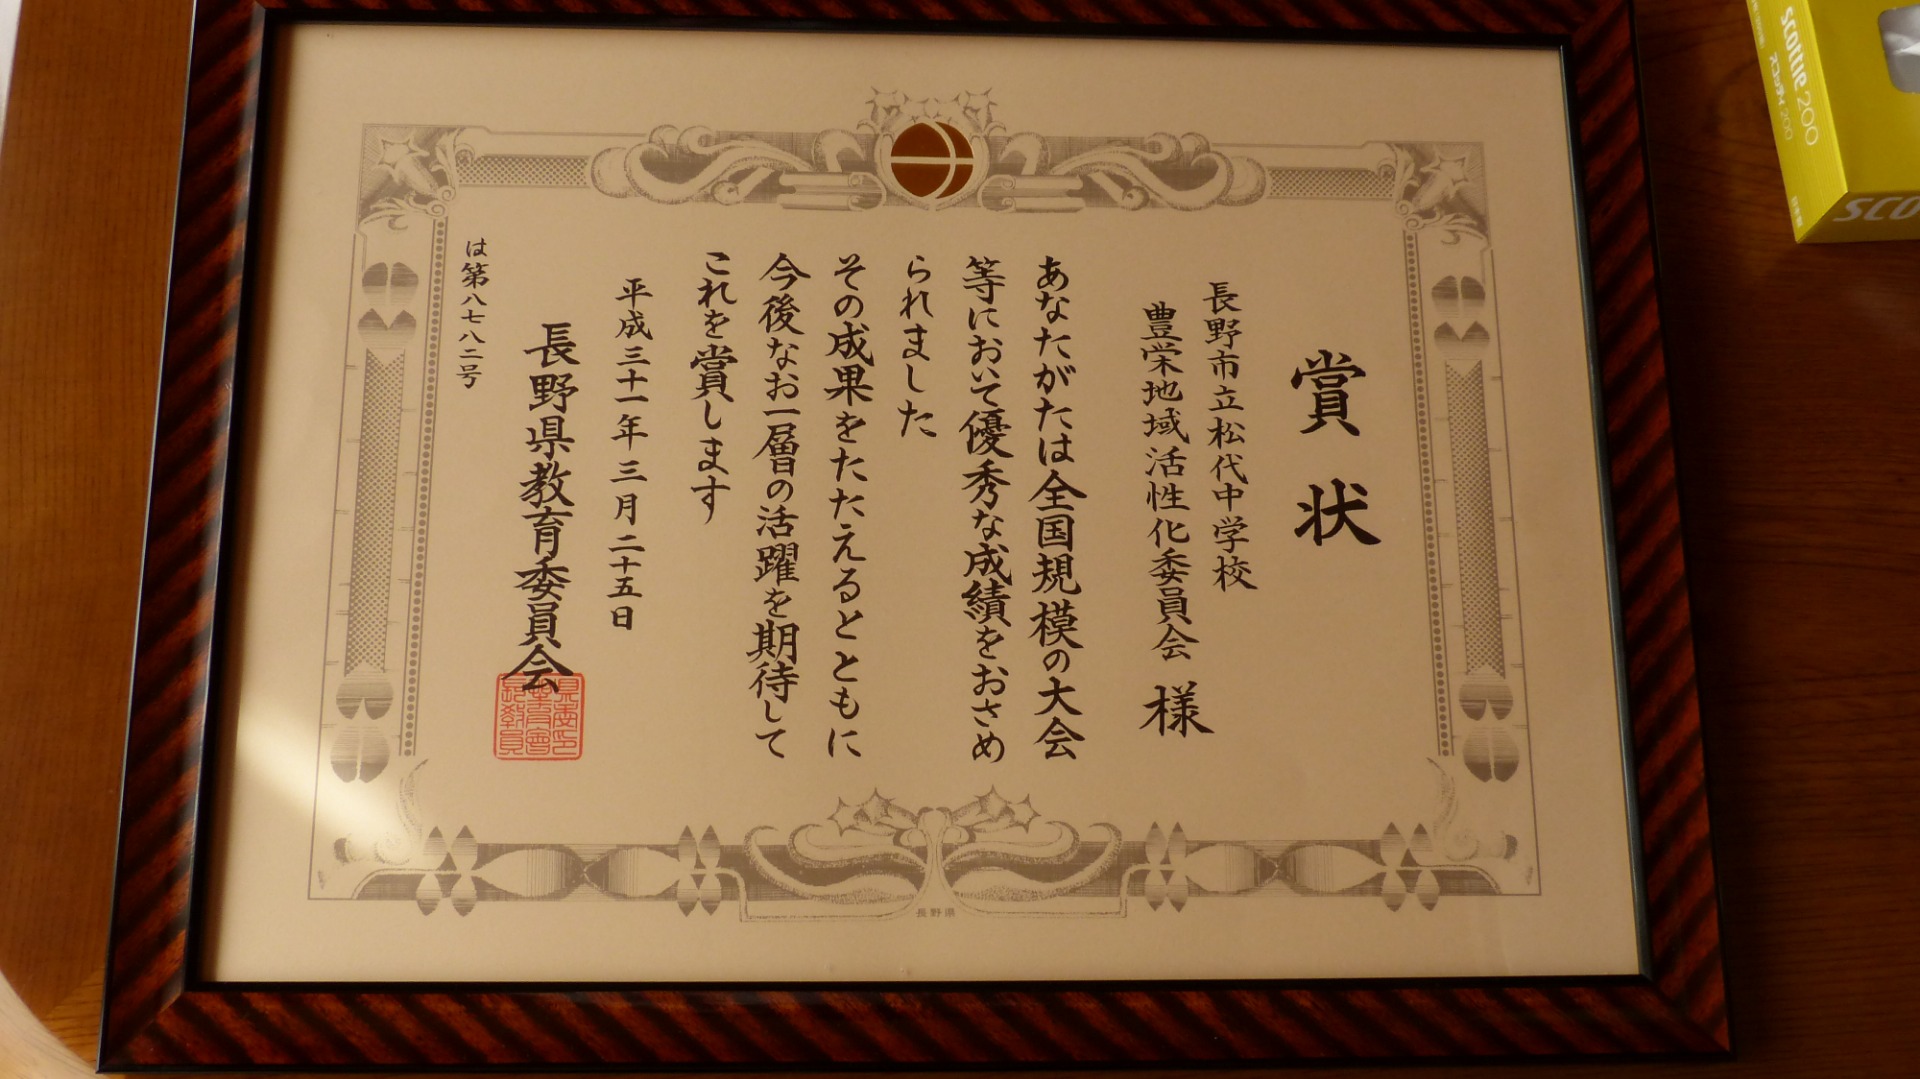 賞状
長野市立松代中学校
豊栄地域活性化委員会 様
あなたがたは全国規模の大会
等において優秀な成績をおさめ
られました
その成果をたたえるとともに
今後なお一層の活躍を期待して
これを賞します
平成三十一年三月二十五日
長野県教育委員会
は第八七八二号
長野県
scottie 200
スコッティ 200
SCO